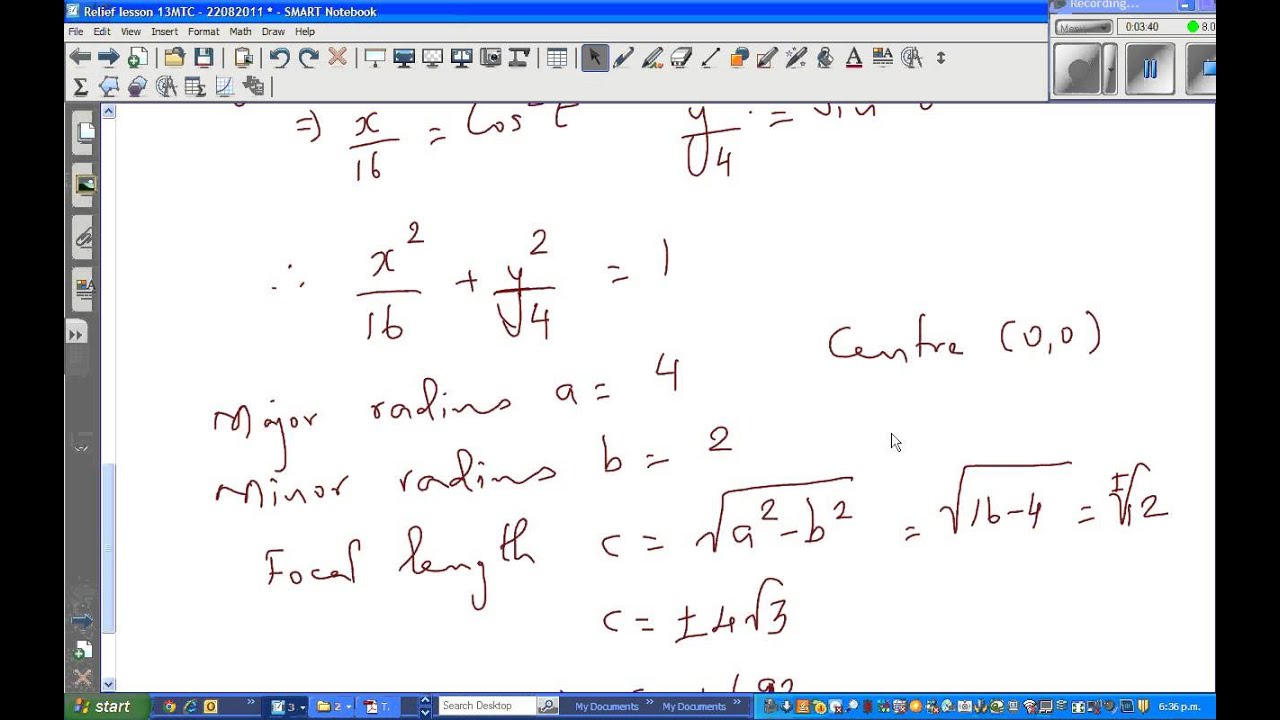 Relief lesson 13MTC - 22082011 * - SMART Notebook
Recording...
File Edit View Insert Format Math Draw Help
Menu 0:03:40 8.0
=> x/16 = Cos t y/4 = sin
∴ x²/16 + y²/4 = 1
Centre (0,0)
Major radius a = 4
Minor radius b = 2
Focal length c = √(a²-b²) = √(16-4) = ±√12
c = ±4√3
start 3 2 T. Search Desktop My Documents » My Documents » 6:36 p.m.